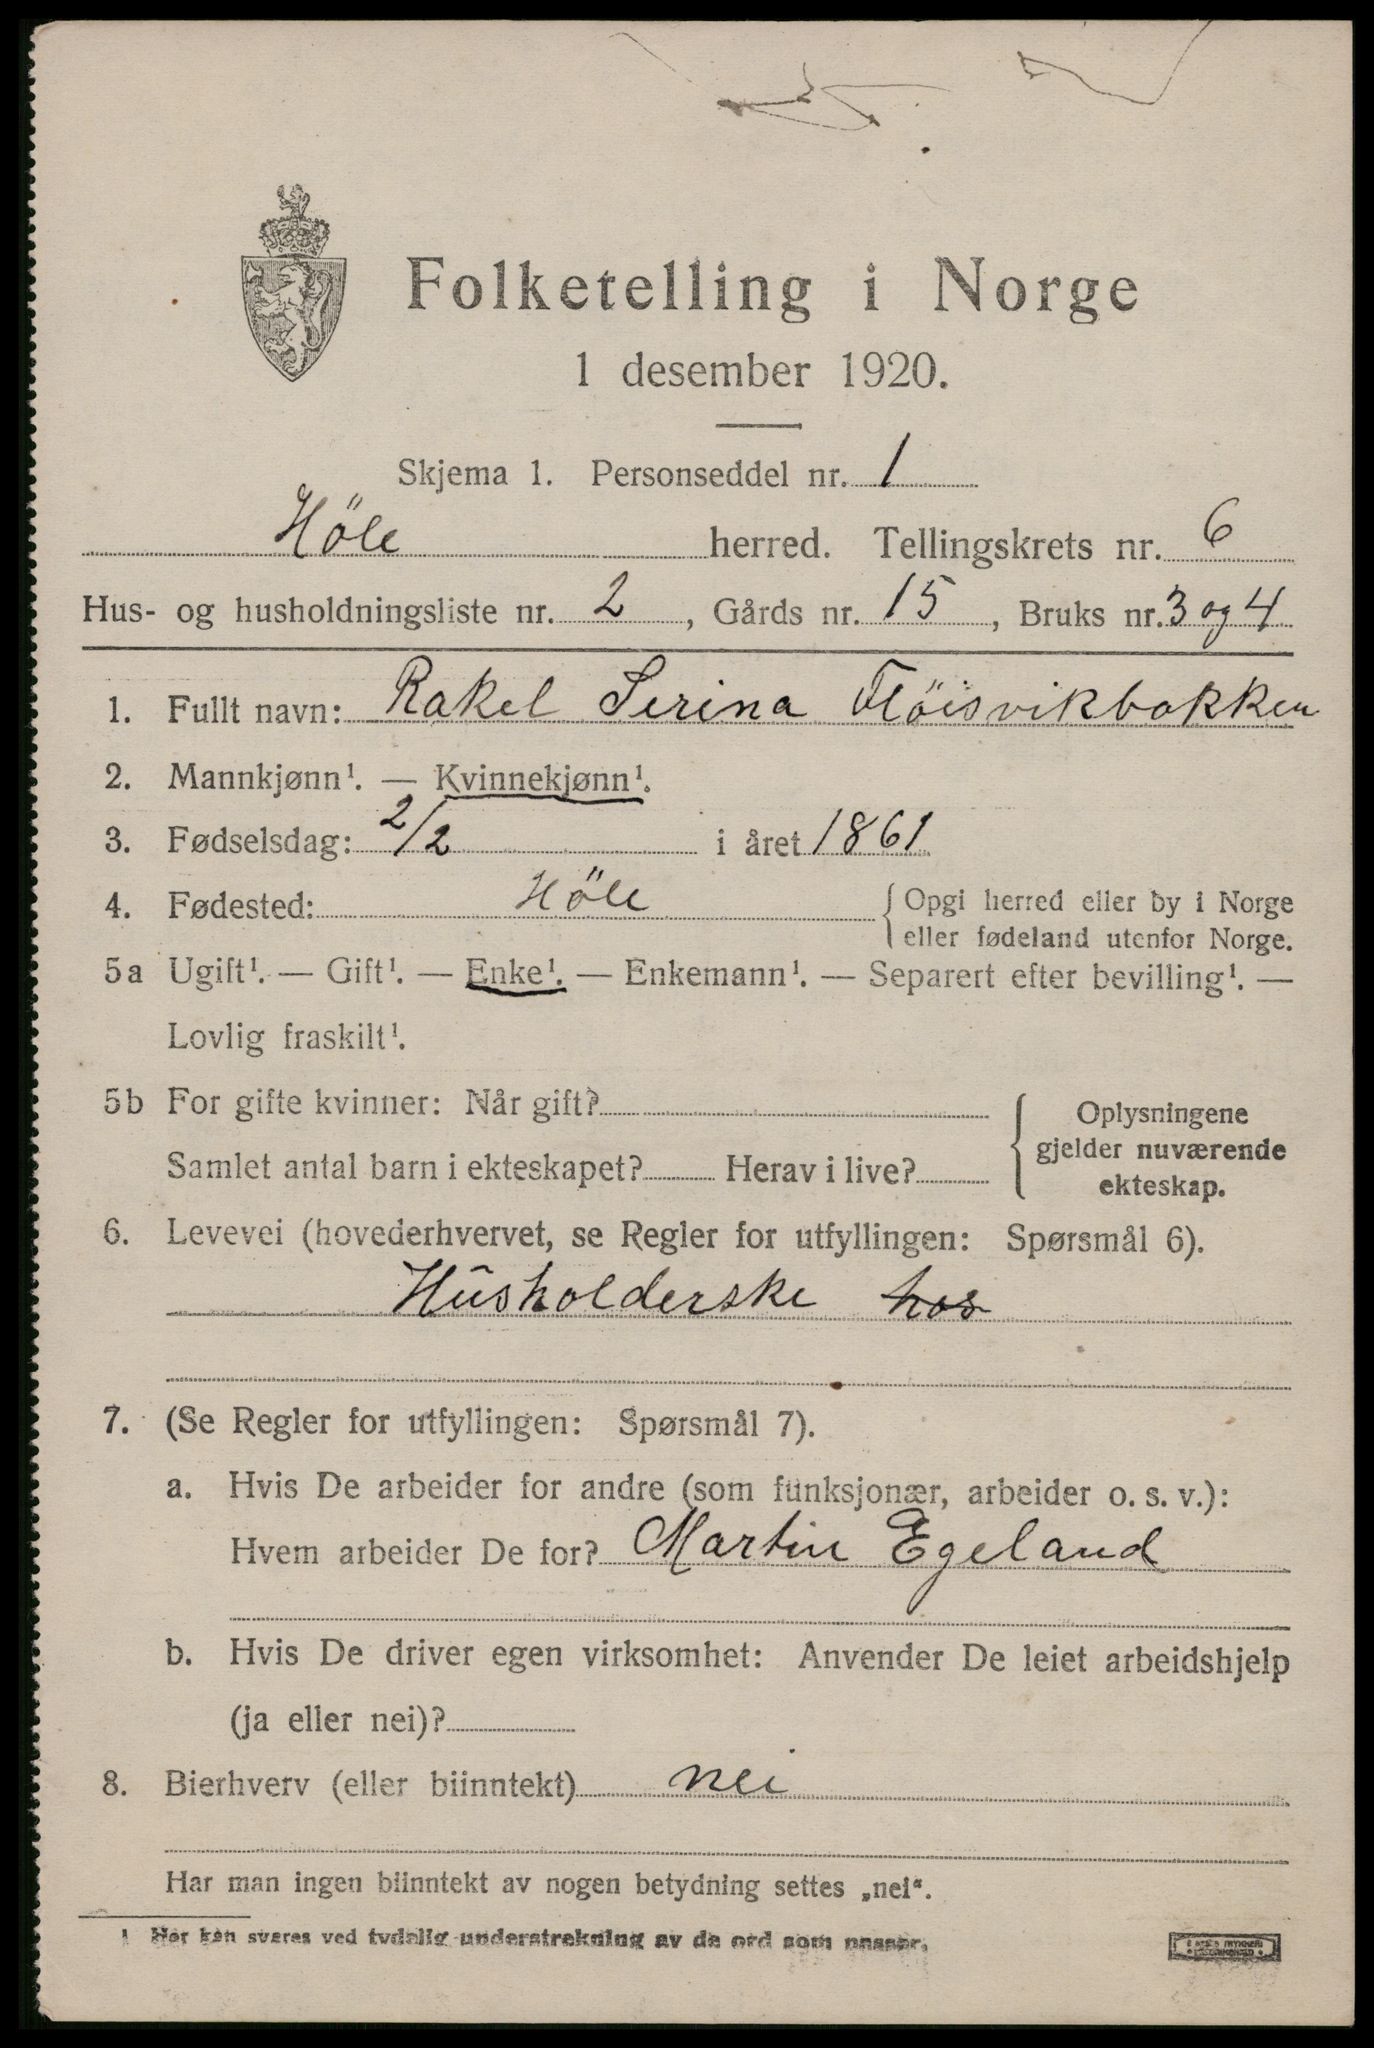 Folketelling i Norge
1 desember 1920.
Skjema 1. Personseddel nr. 1
Höle herred. Tellingskrets nr. 6
Hus- og husholdningsliste nr. 2, Gårds nr. 15, Bruks nr. 3 og 4
1. Fullt navn: Rakel Serina Flöisvikbakken
2. Mannkjønn¹. — Kvinnekjønn¹.
3. Fødselsdag: 2/2 i året 1861
4. Fødested: Höle { Opgi herred eller by i Norge
eller fødeland utenfor Norge.
5a Ugift¹. — Gift¹. — Enke¹. — Enkemann¹. — Separert efter bevilling¹. —
Lovlig fraskilt¹.
5b For gifte kvinner: Når gift?
Samlet antal barn i ekteskapet? Herav i live?
Oplysningene
gjelder nuværende
ekteskap.
6. Levevei (hovederhvervet, se Regler for utfyllingen: Spørsmål 6).
Husholderske hos
7. (Se Regler for utfyllingen: Spørsmål 7).
a. Hvis De arbeider for andre (som funksjonær, arbeider o. s. v.):
Hvem arbeider De for? Martin Egeland
b. Hvis De driver egen virksomhet: Anvender De leiet arbeidshjelp
(ja eller nei)?
8. Bierhverv (eller biinntekt) nei
Har man ingen biinntekt av nogen betydning settes „nei“.
1 Her kan svares ved tydelig understrekning av de ord som passer.